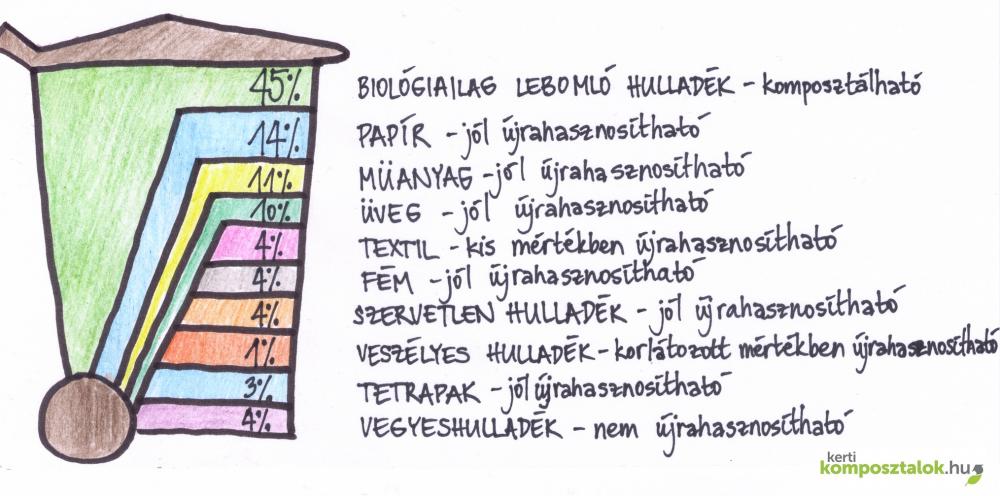 45% BIOLÓGIAILAG LEBOMLÓ HULLADÉK - komposztálható
14% PAPÍR - jól újrahasznosítható
11% MŰANYAG - jól újrahasznosítható
10% ÜVEG - jól újrahasznosítható
4% TEXTIL - kis mértékben újrahasznosítható
4% FÉM - jól újrahasznosítható
4% SZERVETLEN HULLADÉK - jól újrahasznosítható
1% VESZÉLYES HULLADÉK - korlátozott mértékben újrahasznosítható
3% TETRAPAK - jól újrahasznosítható
4% VEGYESHULLADÉK - nem újrahasznosítható
kerti
komposztalok.hu